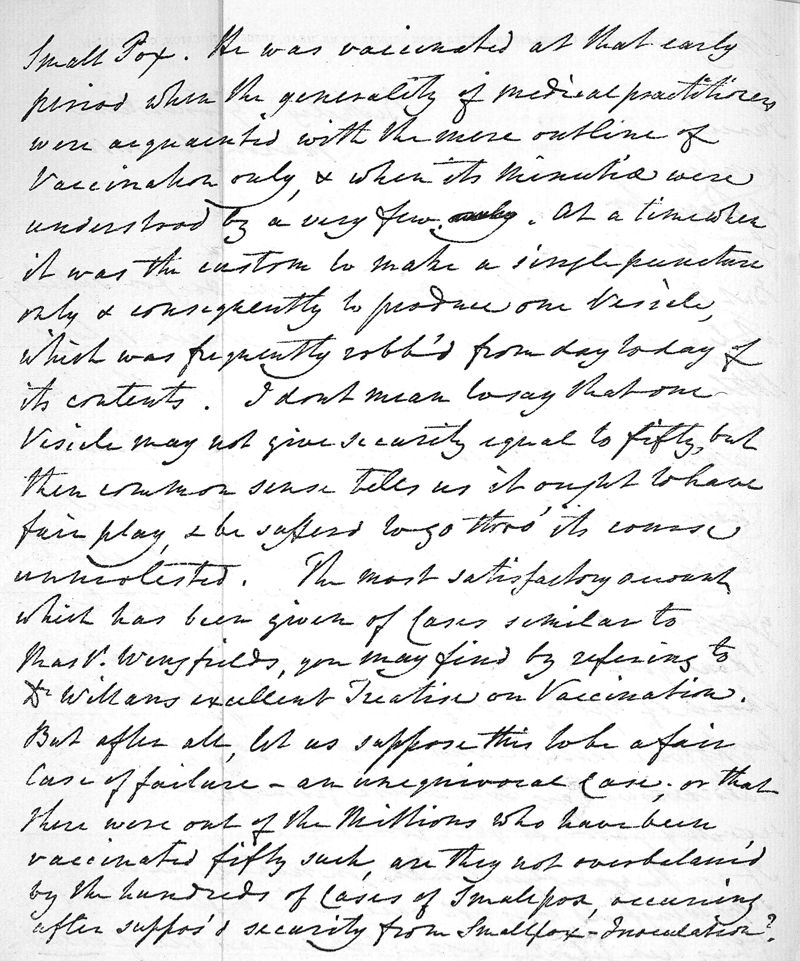 Small Pox. He was vaccinated at that early
period when the generality of medical practitioners
were acquainted with the mere outline of
Vaccination only, & when its Minutiæ were
understood by a very few. At a time when
it was the custom to make a single puncture
only & consequently to produce one Vesicle,
which was frequently robb'd from day to day of
its contents. I dont mean to say that one
Vesicle may not give security equal to fifty, but
then common sense tells us it ought to have
fair play, & be sufferd to go thro' its course
unmolested. The most satisfactory account
which has been given of Cases similar to
Mas.r Wingfields, you may find by refering to
Dr Willans excellent Treatise on Vaccination.
But after all, let us suppose this to be a fair
Case of failure - an unequivocal Case; or that
there were out of the Millions who have been
vaccinated fifty such, are they not overbalanc'd
by the hundreds of Cases of Smallpox, occurring
after suppos'd security from Smallpox-Inoculation?